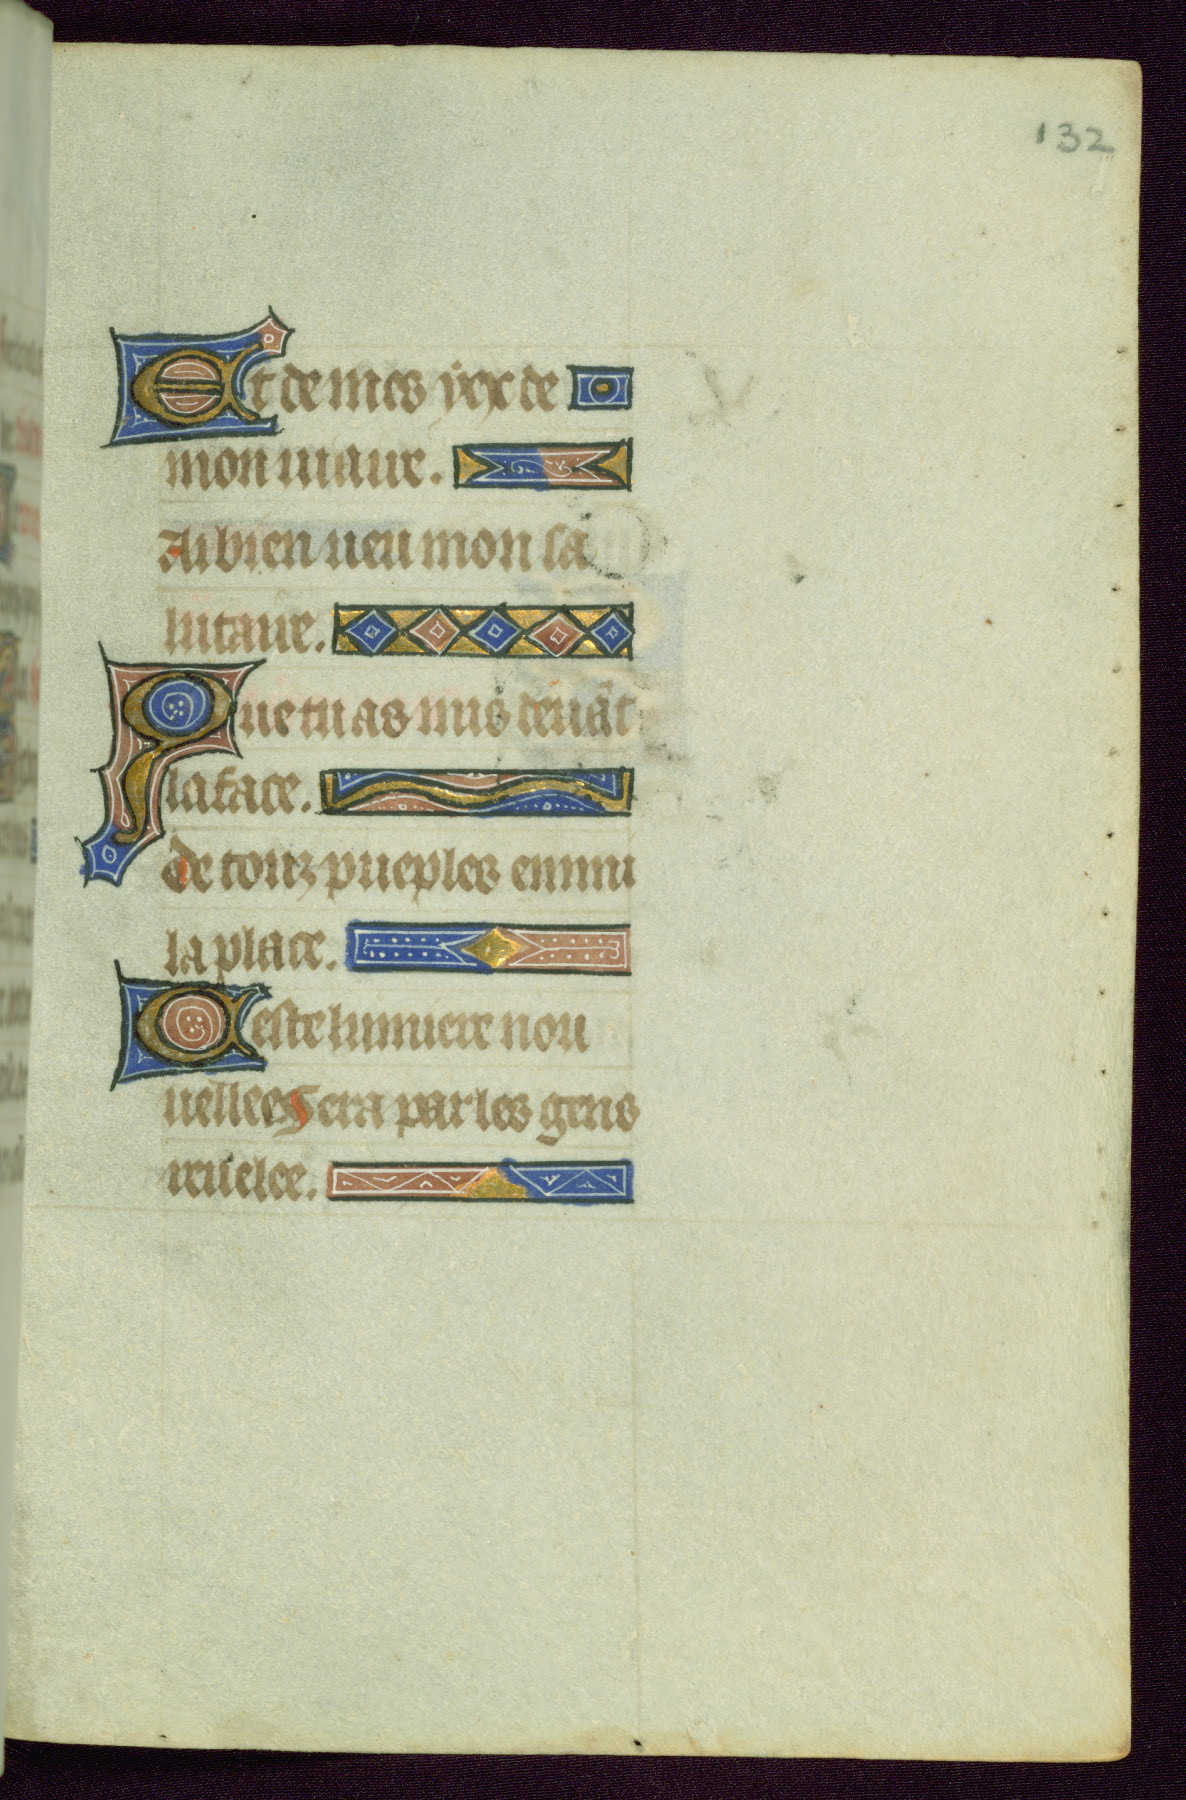 132
Et de mes yex de
mon uiaire.
Ai bien ueu mon sa
lutaire.
Que tu as mis deuāt
la face.
de touz pueples enmi
la place.
Ceste lumiere nou
uellee Sera par les gens
reuelee.